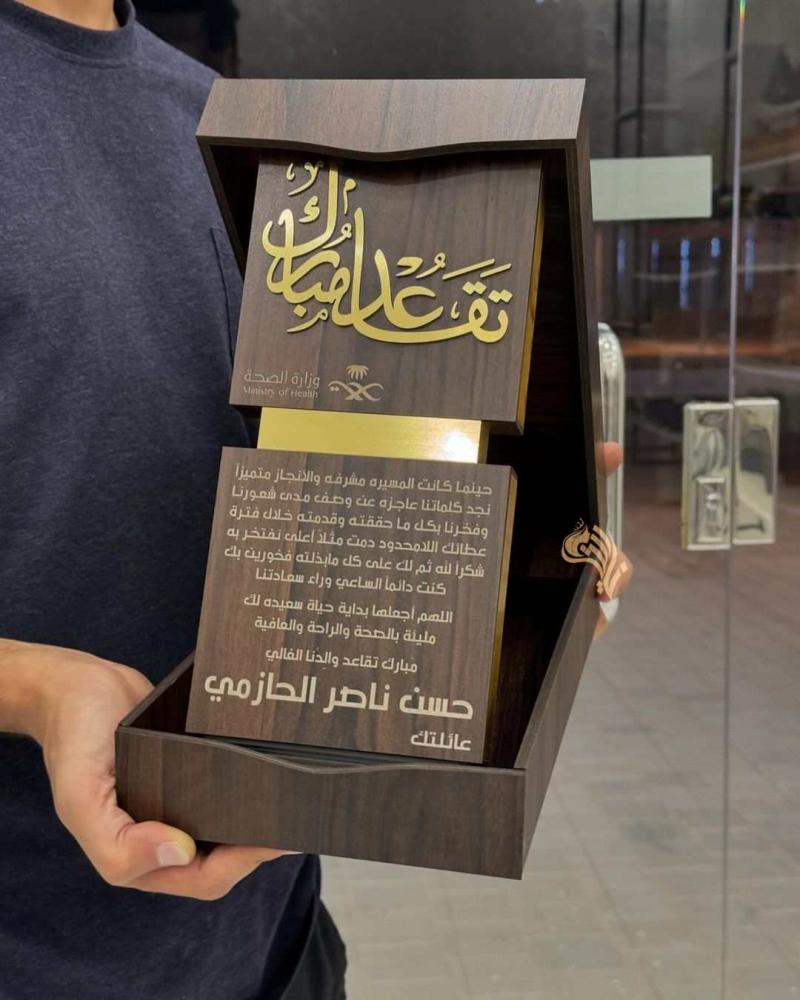 تقاعد مبارك
وزارة الصحة
Ministry of Health
حينما كانت المسيره مشرفه والانجاز متميزاً
نجد كلماتنا عاجزه عن وصف مدى شعورنا
وفخرنا بكل ما حققته وقدمته خلال فترة
عطائك اللامحدود دمت مثلاً أعلى نفتخر به
شكراً لله ثم لك على كل مابذلته فخورين بك
كنت دائماً الساعي وراء سعادتنا
اللهم أجعلها بداية حياة سعيده لك
مليئة بالصحة والراحة والعافية
مبارك تقاعد والدنا الغالي
حسن ناصر الحازمي
عائلتك